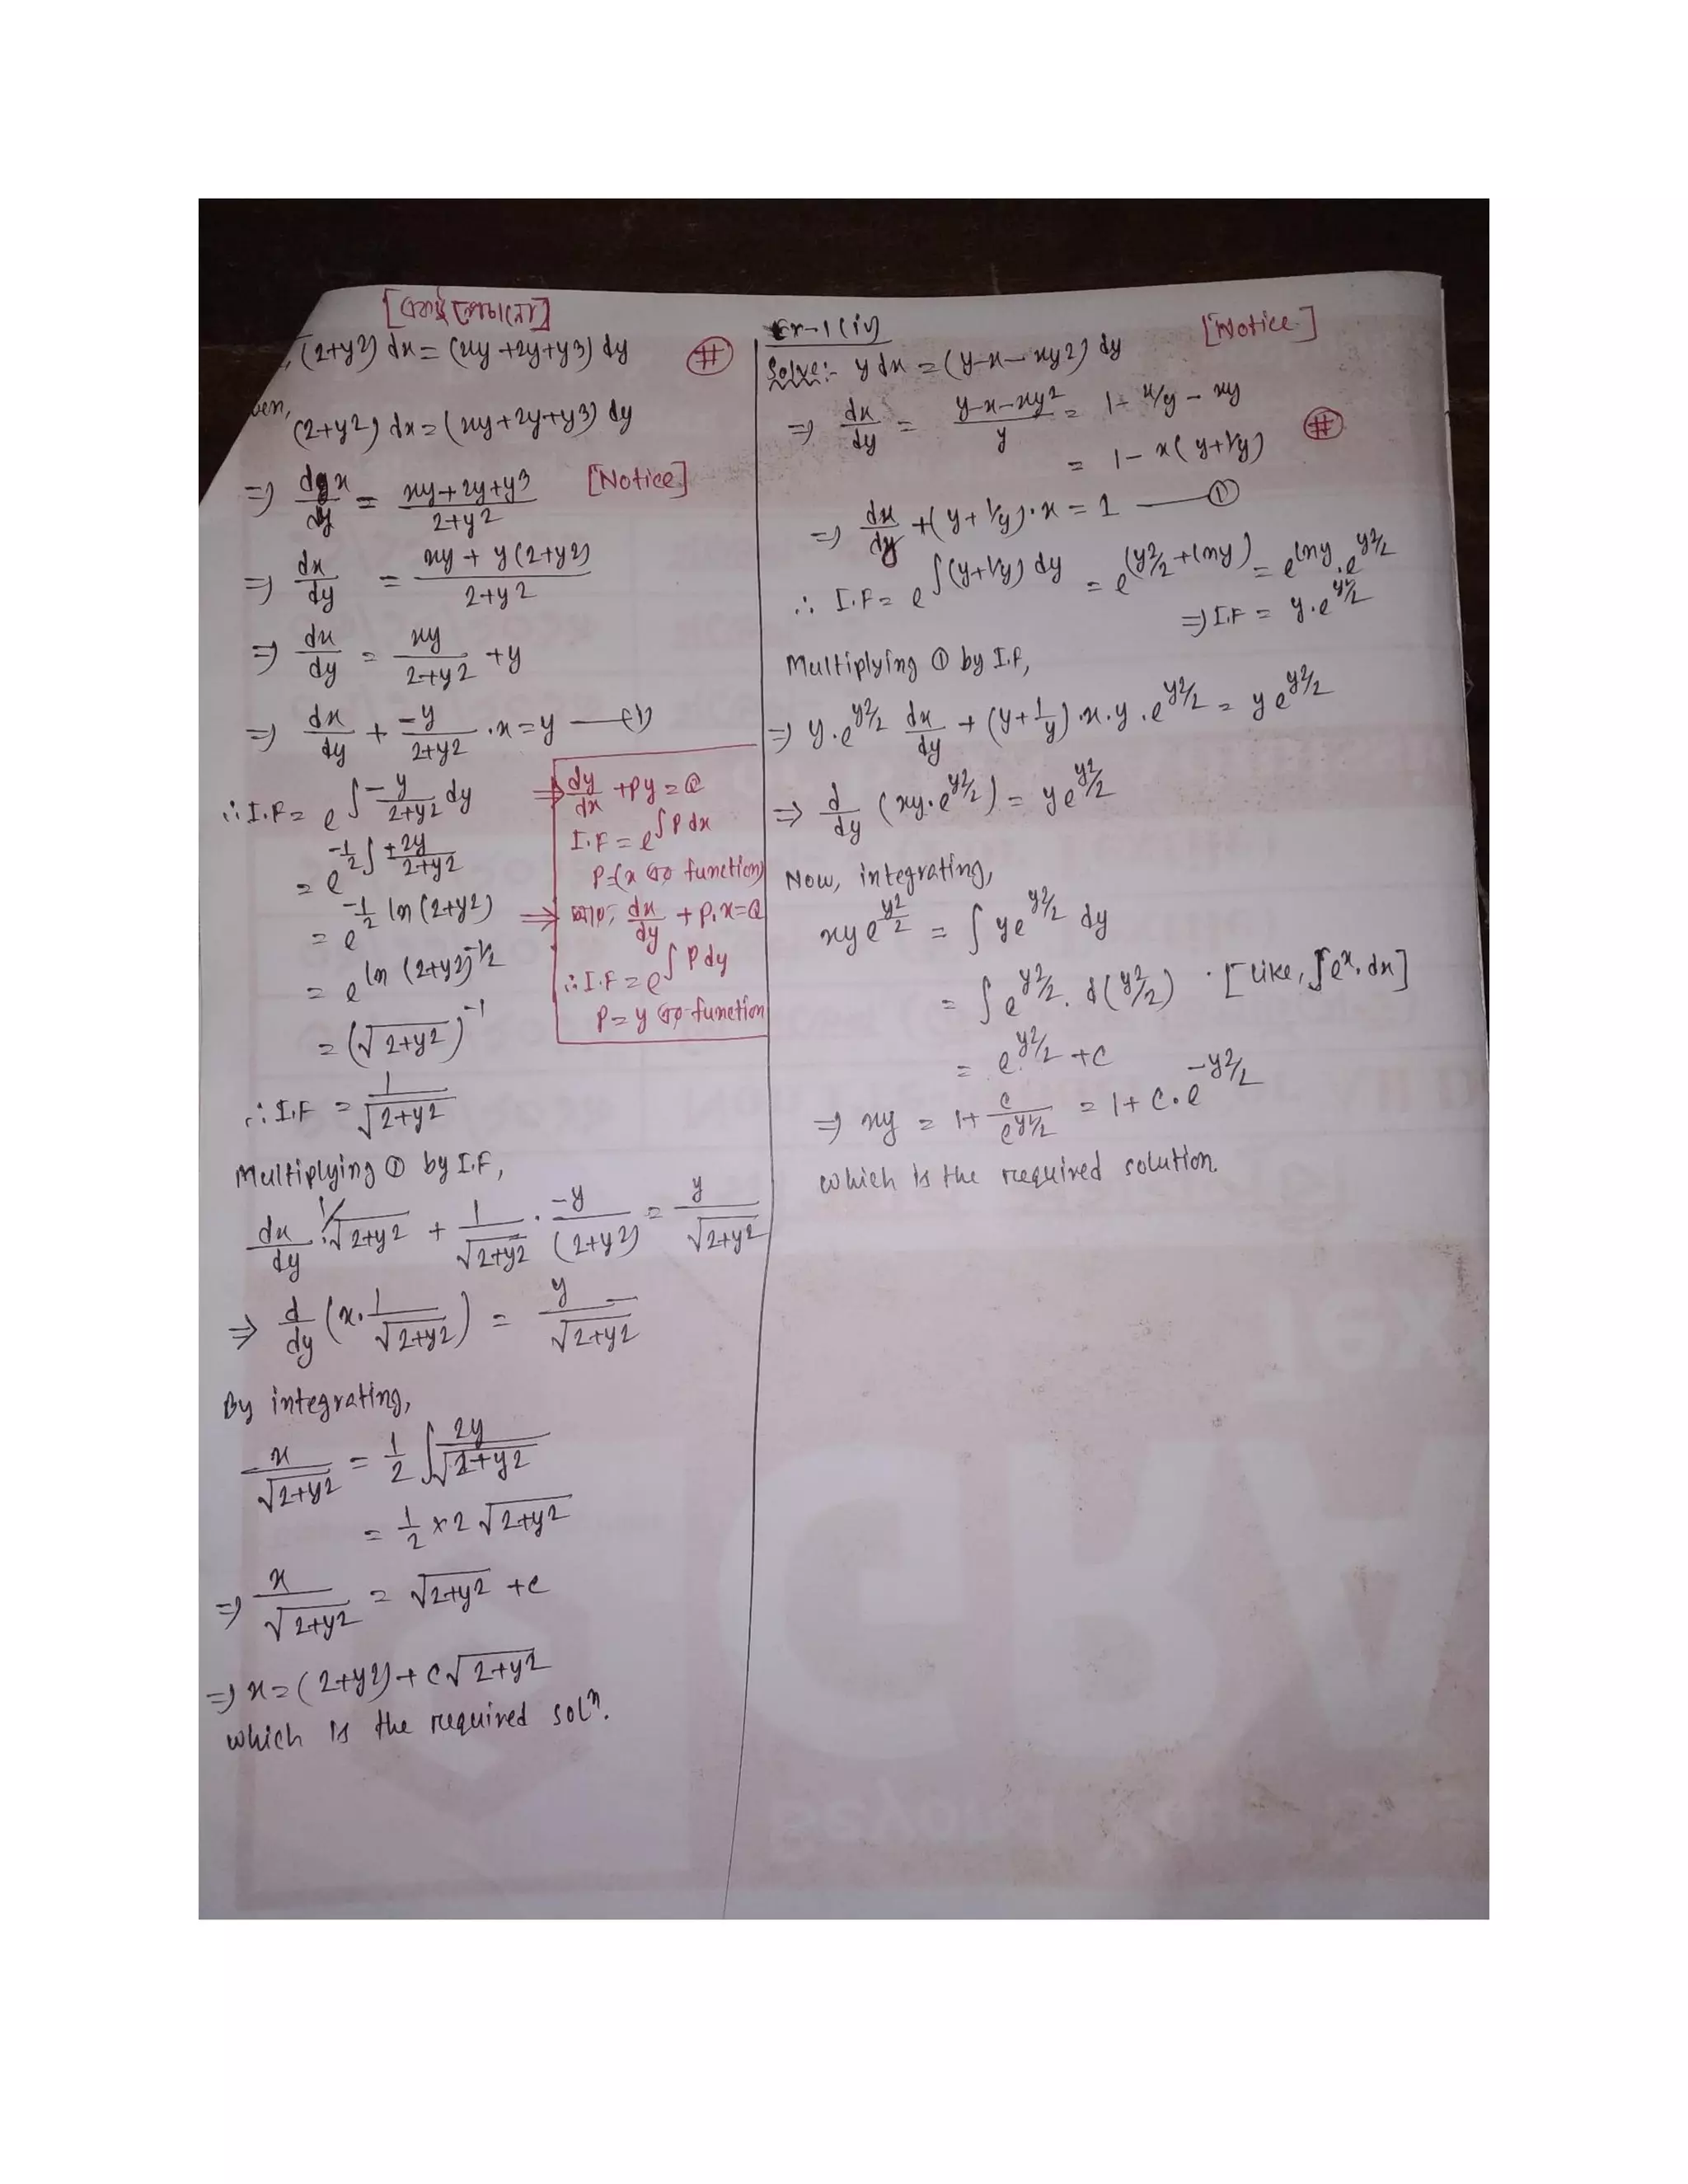 (2+y2) dx = (xy+2y+y3) dy
(2+y2) dx = (xy+2y+y3) dy
⇒ dx/dy = xy+2y+y3 / 2+y2 [Notice]
⇒ dx/dy = xy + y(2+y2) / 2+y2
⇒ dx/dy = xy / 2+y2 + y
⇒ dx/dy + -y/2+y2 · x = y —(1)
∴ I.F = e^∫ -y/2+y2 dy
= e^-1/2 ∫ +2y/2+y2
= e^-1/2 ln (2+y2)
= e^ln (2+y2)^-1/2
= (√2+y2)^-1
∴ I.F = 1/√2+y2
⇒ dy/dx + Py = Q
I.F = e^∫P dx
P=(x এর function)
⇒ dx/dy + P.x=Q
∴ I.F = e^∫P dy
P = y এর function
Multiplying ① by I.F,
dx/dy · 1/√2+y2 + 1/√2+y2 · -y/(2+y2) = y/√2+y2
⇒ d/dy (x. 1/√2+y2) = y/√2+y2
By integrating,
x/√2+y2 = 1/2 ∫ 2y/√2+y2
= 1/2 × 2 √2+y2
⇒ x/√2+y2 = √2+y2 + c
⇒ x = (2+y2) + c√2+y2
which is the required solⁿ.
Ex-1(iv) [Notice]
Solve:- y dx = (y-x-xy2) dy
⇒ dx/dy = y-x-xy2 / y = 1 - x/y - xy
= 1 - x(y+1/y)
⇒ dx/dy + (y+1/y)·x = 1 —①
∴ I.F = e^∫(y+1/y) dy = e^(y2/2 + lny) = e^lny . e^y2/2
⇒ I.F = y.e^y2/2
Multiplying ① by I.F,
⇒ y.e^y2/2 dx/dy + (y+1/y).x.y.e^y2/2 = y e^y2/2
⇒ d/dy (xy.e^y2/2) = ye^y2/2
Now, integrating,
xye^y2/2 = ∫ ye^y2/2 dy
= ∫ e^y2/2 . d(y2/2) · [Like, ∫e^x.dx]
= e^y2/2 + c
⇒ xy = 1+ c/e^y2/2 = 1 + c.e^-y2/2
which is the required solution.